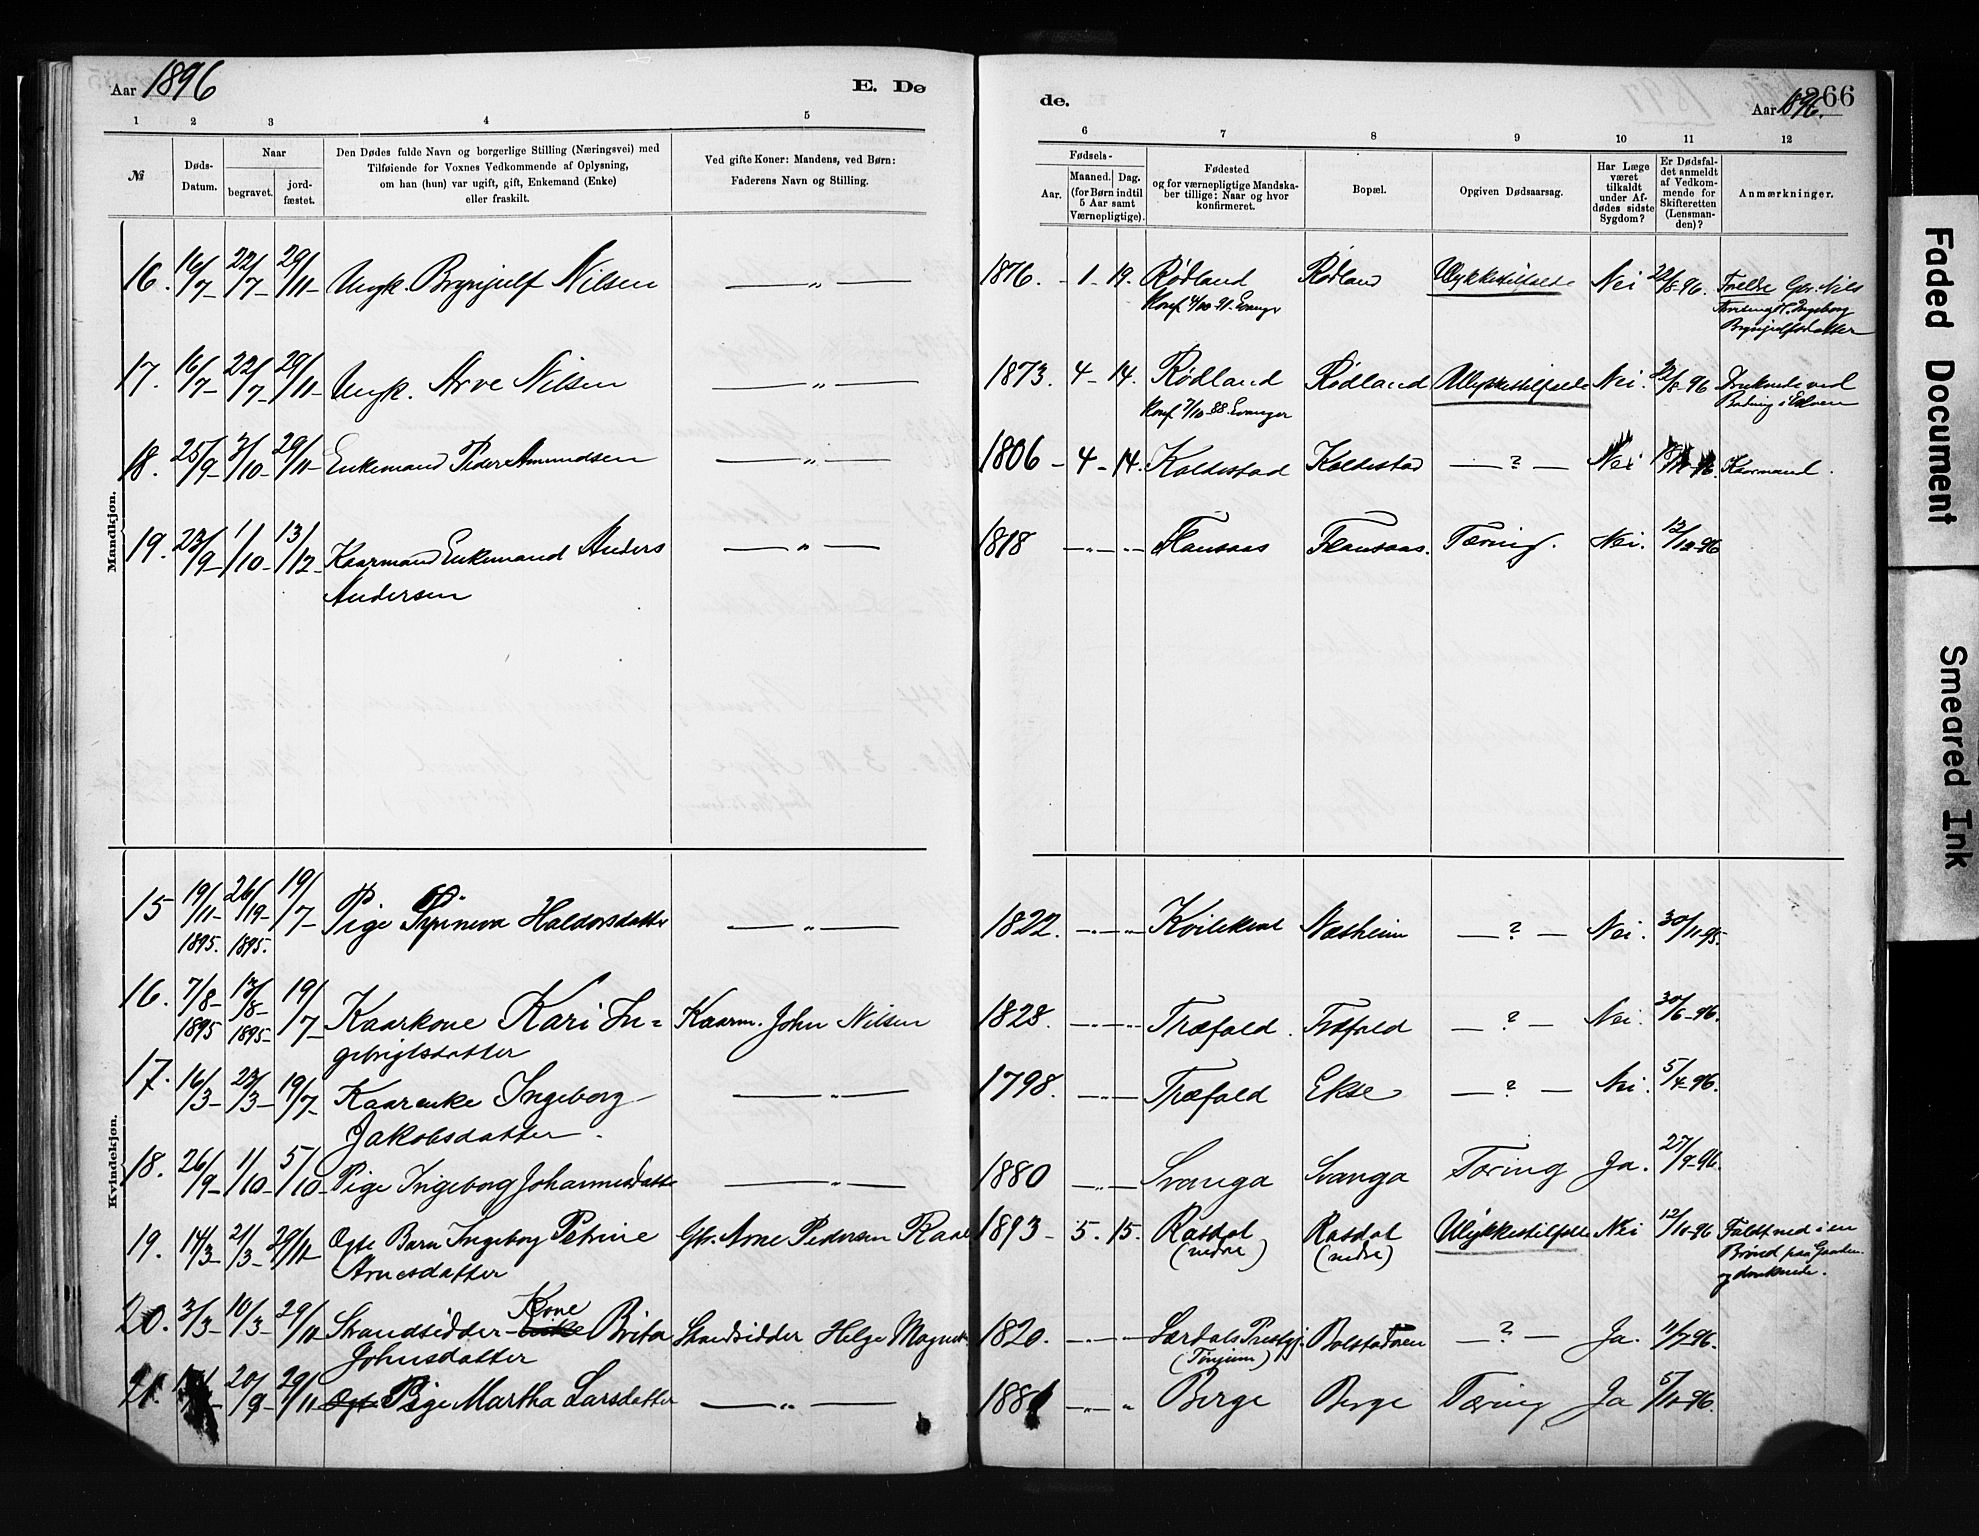 Aar 1896
E. Dø
de.
266
Aar 1896.
1 2 3 4 5
6 7 8 9 10 11 12
№
Døds-
Datum.
Naar
begravet.
jord-
fæstet.
Den Dødes fulde Navn og borgerlige Stilling (Næringsvei) med
Tilføiende for Voxnes Vedkommende af Oplysning,
om han (hun) var ugift, gift, Enkemand (Enke)
eller fraskilt.
Ved gifte Koner: Mandens, ved Børn:
Faderens Navn og Stilling.
Fødsels-
Aar.
Maaned. Dag.
(for Børn indtil
5 Aar samt
Værnepligtige).
Fødested
og for værnepligtige Mandska-
ber tillige: Naar og hvor
konfirmeret.
Bopæl.
Opgiven Dødsaarsag.
Har Læge
været
tilkaldt
under Af-
dødes sidste
Sygdom?
Er Dødsfal-
det anmeldt
af Vedkom-
mende for
Skifteretten
(Lensman-
den)?
Anmærkninger.
Mandkjøn.
16. 16/7- 22/7- 29/11- Ungk. Brynjulf Nilsen — " — 1876. - 1 - 19. Rødland Rødland Ulykkestilfælde Nei 22/8-96. Forældre Gbr. Nils
Konf. 4/10-91. Evanger
Ingeborg
Brynjulfsdatter
17. 16/7- 22/7- 29/11- Ungk. Arve Nilsen — " — 1873. 4 - 14. Rødland Rødland Ulykkestilfælde Nei. 22/8-96 Druknede ved
Konf. 7/10-88. Evanger
Badning i Elven
18. 25/9- 3/10- 29/11- Enkemand Peder Amundsen — " — 1806 - 4 - 14. Koldestad Koldestad — ? — Nei Kaarmand.
19. 23/9- 1/10- 13/12- Kaarmand Enkemand Anders — " — 1818 — " — " — Flansaas Flansaas. Tæring. Nei. 12/12-96
Andersen
Kvindekjøn.
15 19/11- 26/19- 19/7- Pige Haldorsdatter — " — 1822. — " — " — Næsheim — ? — Nei. 30/11-95.
1895. 1895.
16. 7/8- 13/8- 19/7- Kaarkone Kari In= Kaarm. John Nilsen 1828. — " — " — Træfald. Træfald — ? — Nei. 30/6-96.
1895 1895-
gebrigtsdatter
17. 16/3- 23/3- 19/7- Kaarenke Ingeborg — " — 1798. — " — Træfald Ekse — ? — Nei. 5/4-96.
Jakobsdatter.
18. 26/9- 1/10- 5/10- Pige Ingeborg Johannesdatte — " — 1880 — " — Svanga Svanga Tæring Ja. 27/9-96.
19. 14/3- 21/3- 29/11- Ægte Barn Ingeborg Petrine Gbr. Arne Pedersen Rasd 1893 - 5. 15. Rasdal Rasdal Ulykkestilfælde Nei 12/10-96 Faldt ned i en
Arnesdatter (nedre) (nedre) Brønd paa Gaarden
og druknede.
20. 3/3- 10/3- 29/11- Strandsidder- Kone Enke Brita Strandsidder Helge Magnes 1820. — " — " — Lærdals Prestgj. Bolstadøren — ? — Ja. 11/7-96.
Johnsdatter (Tønjum)
21. 20/9- 29/11- Ægte Pige Martha Larsdatter — " — 1881 — " — " Berge Berge Tæring Ja 5/10-96.
Faded Document
Smeared Ink